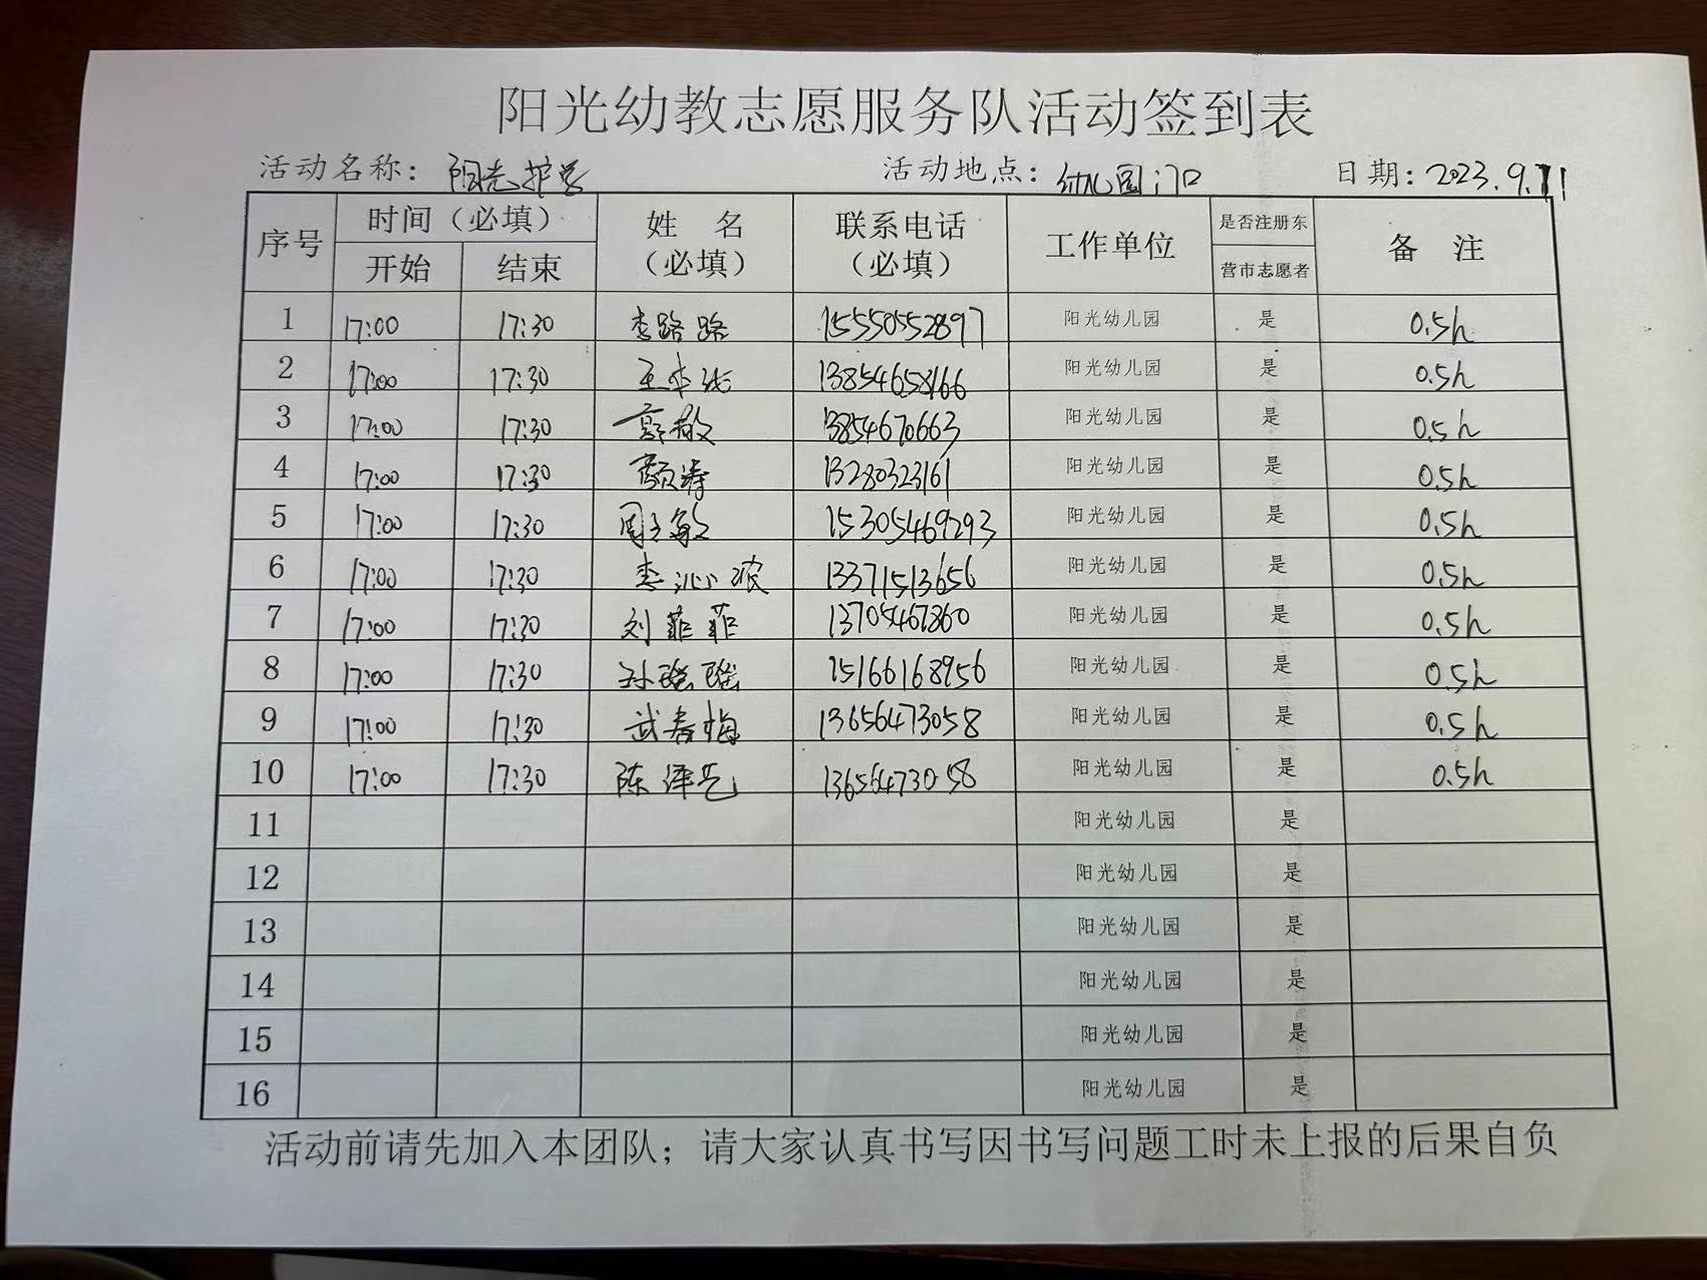 阳光幼教志愿服务队活动签到表
活动名称：阳光护学 活动地点：幼儿园门口 日期：2023.9.11
序号 时间（必填） 姓 名（必填） 联系电话（必填） 工作单位 是否注册东营市志愿者 备 注
开始 结束
1 17:00 17:30 李路路 15550552897 阳光幼儿园 是 0.5h
2 17:00 17:30 王本法 13854658166 阳光幼儿园 是 0.5h
3 17:00 17:30 郭敬 13854670663 阳光幼儿园 是 0.5h
4 17:00 17:30 颜涛 13280323161 阳光幼儿园 是 0.5h
5 17:00 17:30 周敏 15305469293 阳光幼儿园 是 0.5h
6 17:00 17:30 李沁浓 13371513656 阳光幼儿园 是 0.5h
7 17:00 17:30 刘菲菲 13705467860 阳光幼儿园 是 0.5h
8 17:00 17:30 孙瑶瑶 15166168956 阳光幼儿园 是 0.5h
9 17:00 17:30 武春梅 13656473058 阳光幼儿园 是 0.5h
10 17:00 17:30 陈泽艺 13656473058 阳光幼儿园 是 0.5h
11 阳光幼儿园 是
12 阳光幼儿园 是
13 阳光幼儿园 是
14 阳光幼儿园 是
15 阳光幼儿园 是
16 阳光幼儿园 是
活动前请先加入本团队；请大家认真书写因书写问题工时未上报的后果自负